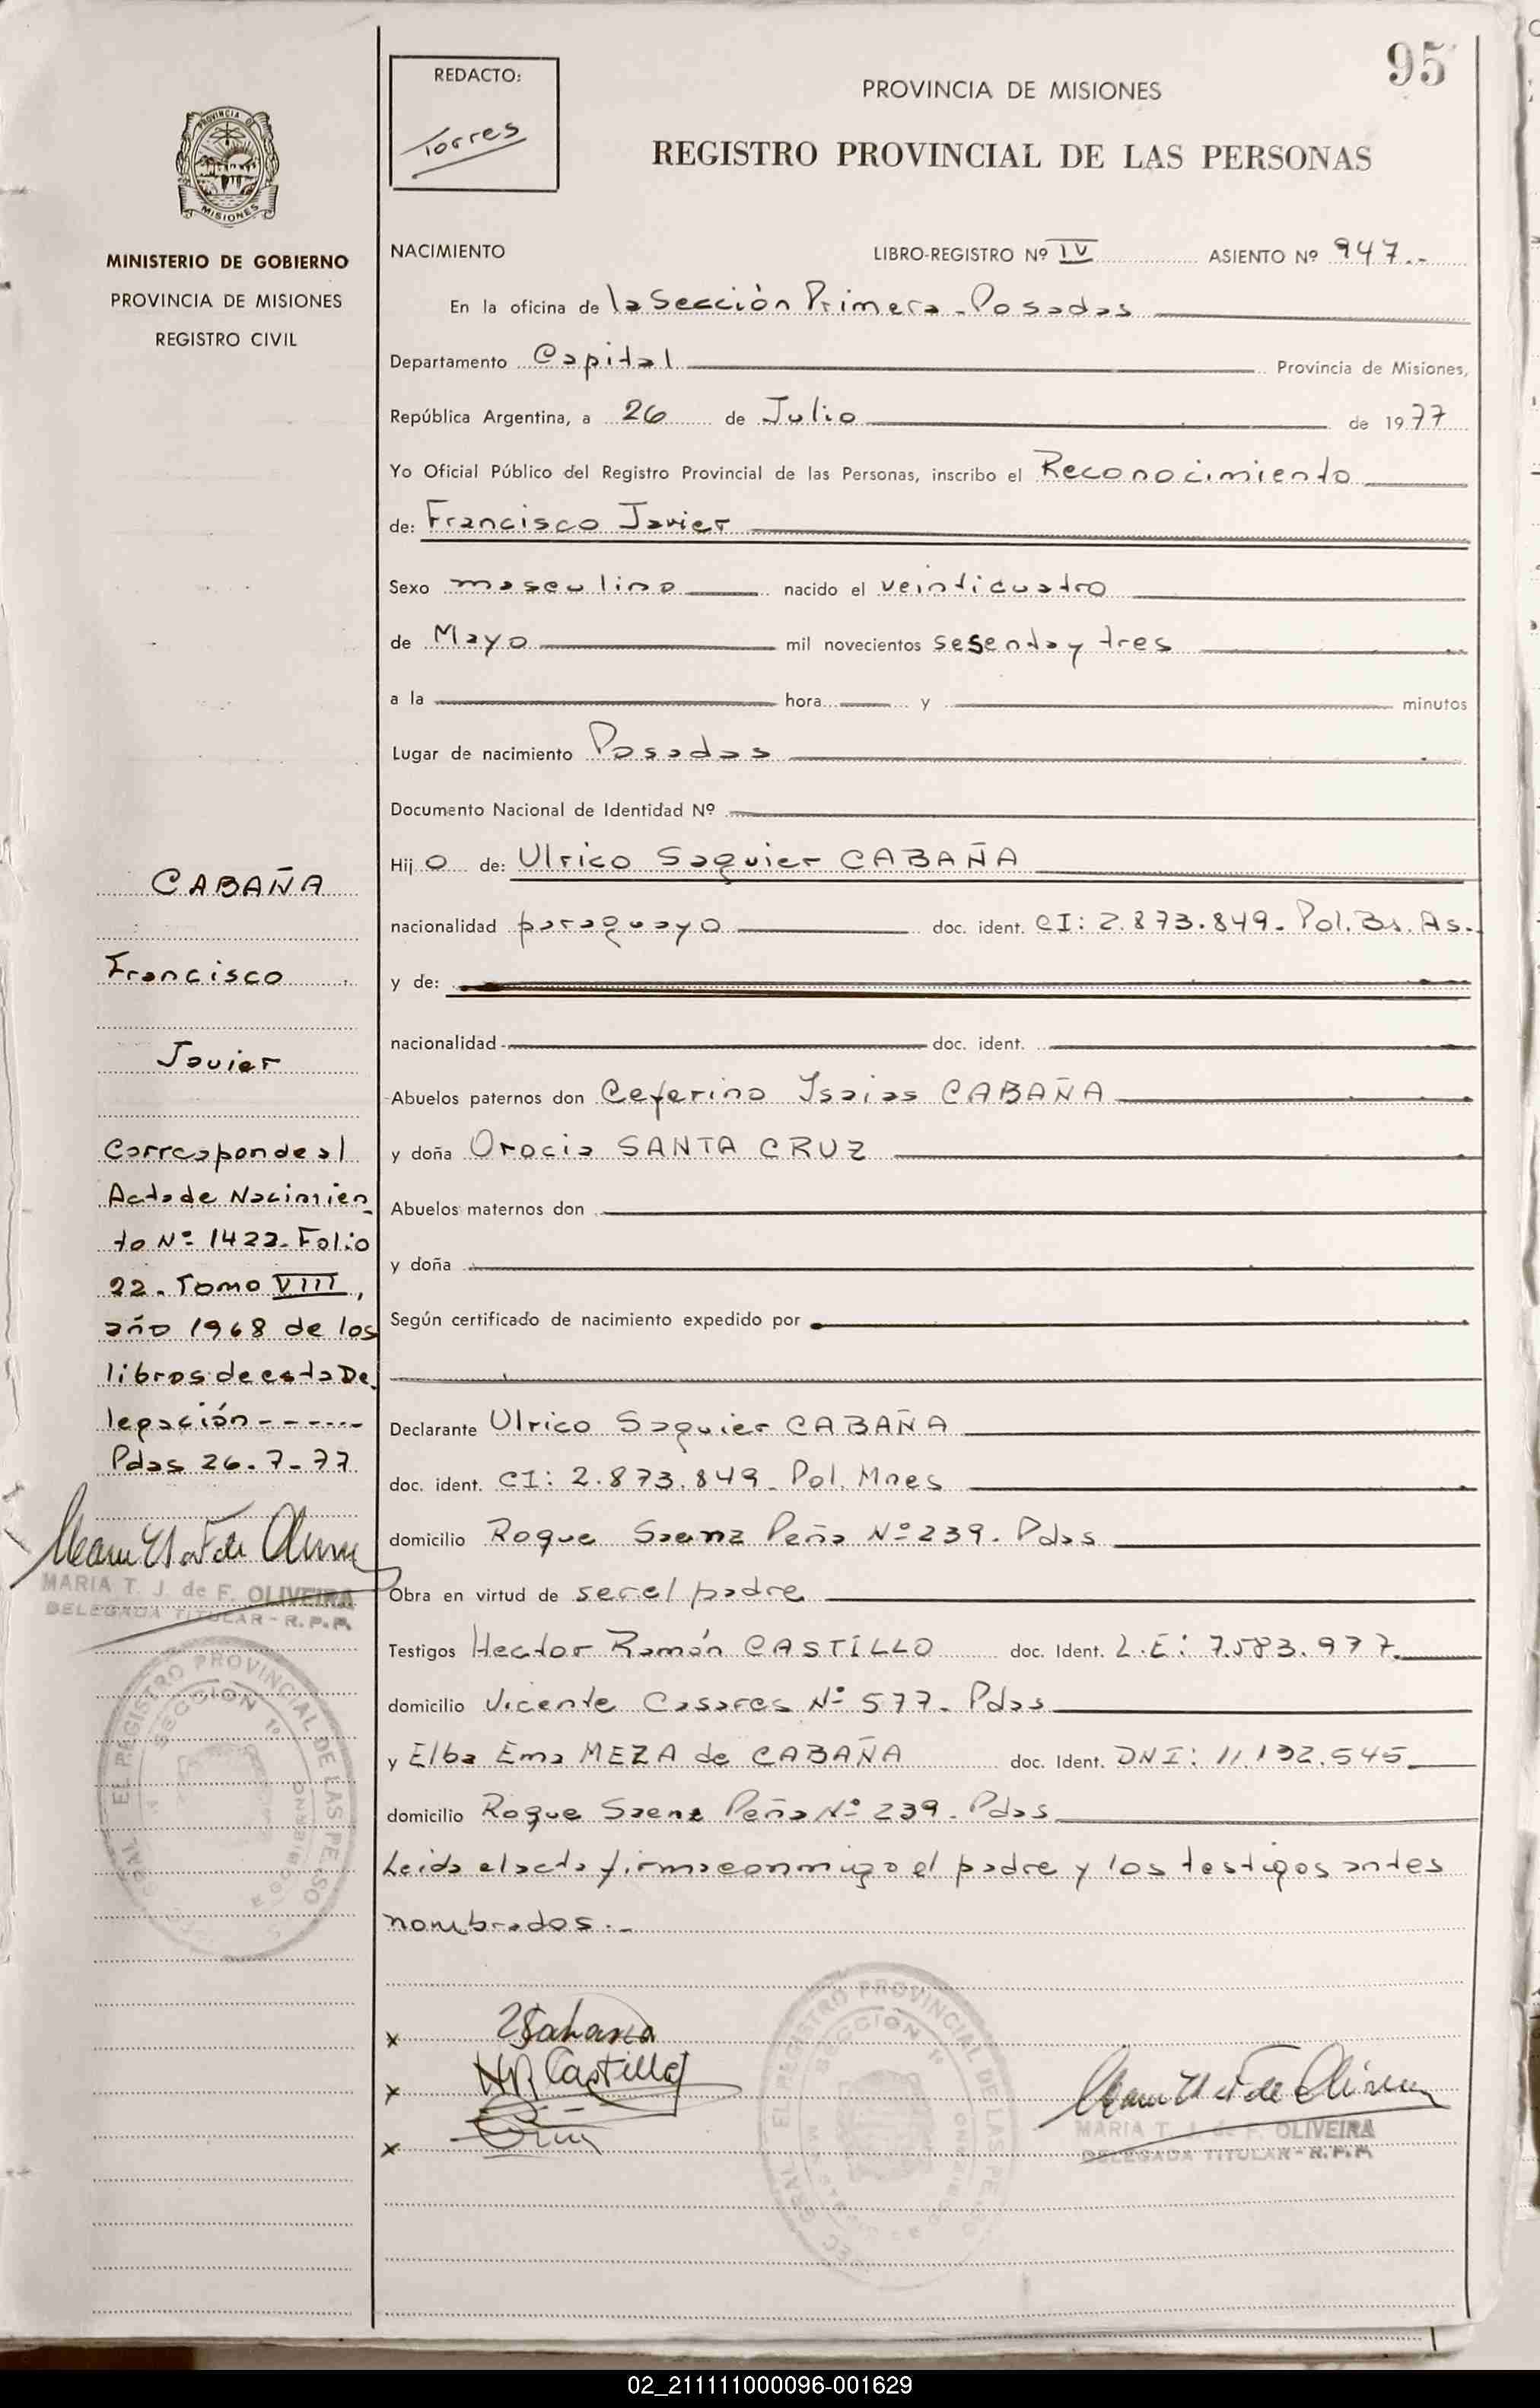 95
REDACTO:
Torres
PROVINCIA DE MISIONES
REGISTRO PROVINCIAL DE LAS PERSONAS
PROVINCIA DE
MISIONES
MINISTERIO DE GOBIERNO
PROVINCIA DE MISIONES
REGISTRO CIVIL
NACIMIENTO LIBRO-REGISTRO Nº IV ASIENTO Nº 947.-
En la oficina de la Sección Primera - Posadas
Departamento Capital Provincia de Misiones,
República Argentina, a 26 de Julio de 1977
Yo Oficial Público del Registro Provincial de las Personas, inscribo el Reconocimiento
de: Francisco Javier
Sexo masculino nacido el veinticuatro
de Mayo mil novecientos sesenta y tres
a la hora y minutos
Lugar de nacimiento Posadas
Documento Nacional de Identidad Nº
Hij o de: Ulrico Saguier CABAÑA
nacionalidad paraguayo doc. ident. CI: 2.873.849. Pol. Bs. As.
y de:
nacionalidad doc. ident.
Abuelos paternos don Ceferino Isaias CABAÑA
y doña Orocia SANTA CRUZ
Abuelos maternos don
y doña
Según certificado de nacimiento expedido por
Declarante Ulrico Saguier CABAÑA
doc. ident. CI: 2.873.849. Pol. Mnes
domicilio Roque Saenz Peña Nº 239. Pdas
Obra en virtud de ser el padre
Testigos Hector Ramón CASTILLO doc. Ident. L.E: 7.583.977.
domicilio Vicente Casares Nº 577. Pdas
y Elba Ema MEZA de CABAÑA doc. Ident. DNI: 11.132.545
domicilio Roque Saenz Peña Nº 239. Pdas
Leida el acta firma conmigo el padre y los testigos antes
nombrados.-
CABAÑA
Francisco
Javier
Corresponde al
Acta de Nacimien
to Nº 1422. Folio
22. Tomo VIII,
año 1968 de los
libros de esta De
legación ------
Pdas 26-7-77
MARIA T. J. de F. OLIVEIRA
DELEGADA TITULAR - R.P.P.
EL REGISTRO PROVINCIAL DE LAS PERSO
SECCION 1º
x
x HR Castillo
x
EL REGISTRO PROVINCIAL DE LAS PERSO
SECCION 1º
MARIA T. J. de F. OLIVEIRA
DELEGADA TITULAR - R.P.P.
02_211111000096-001629